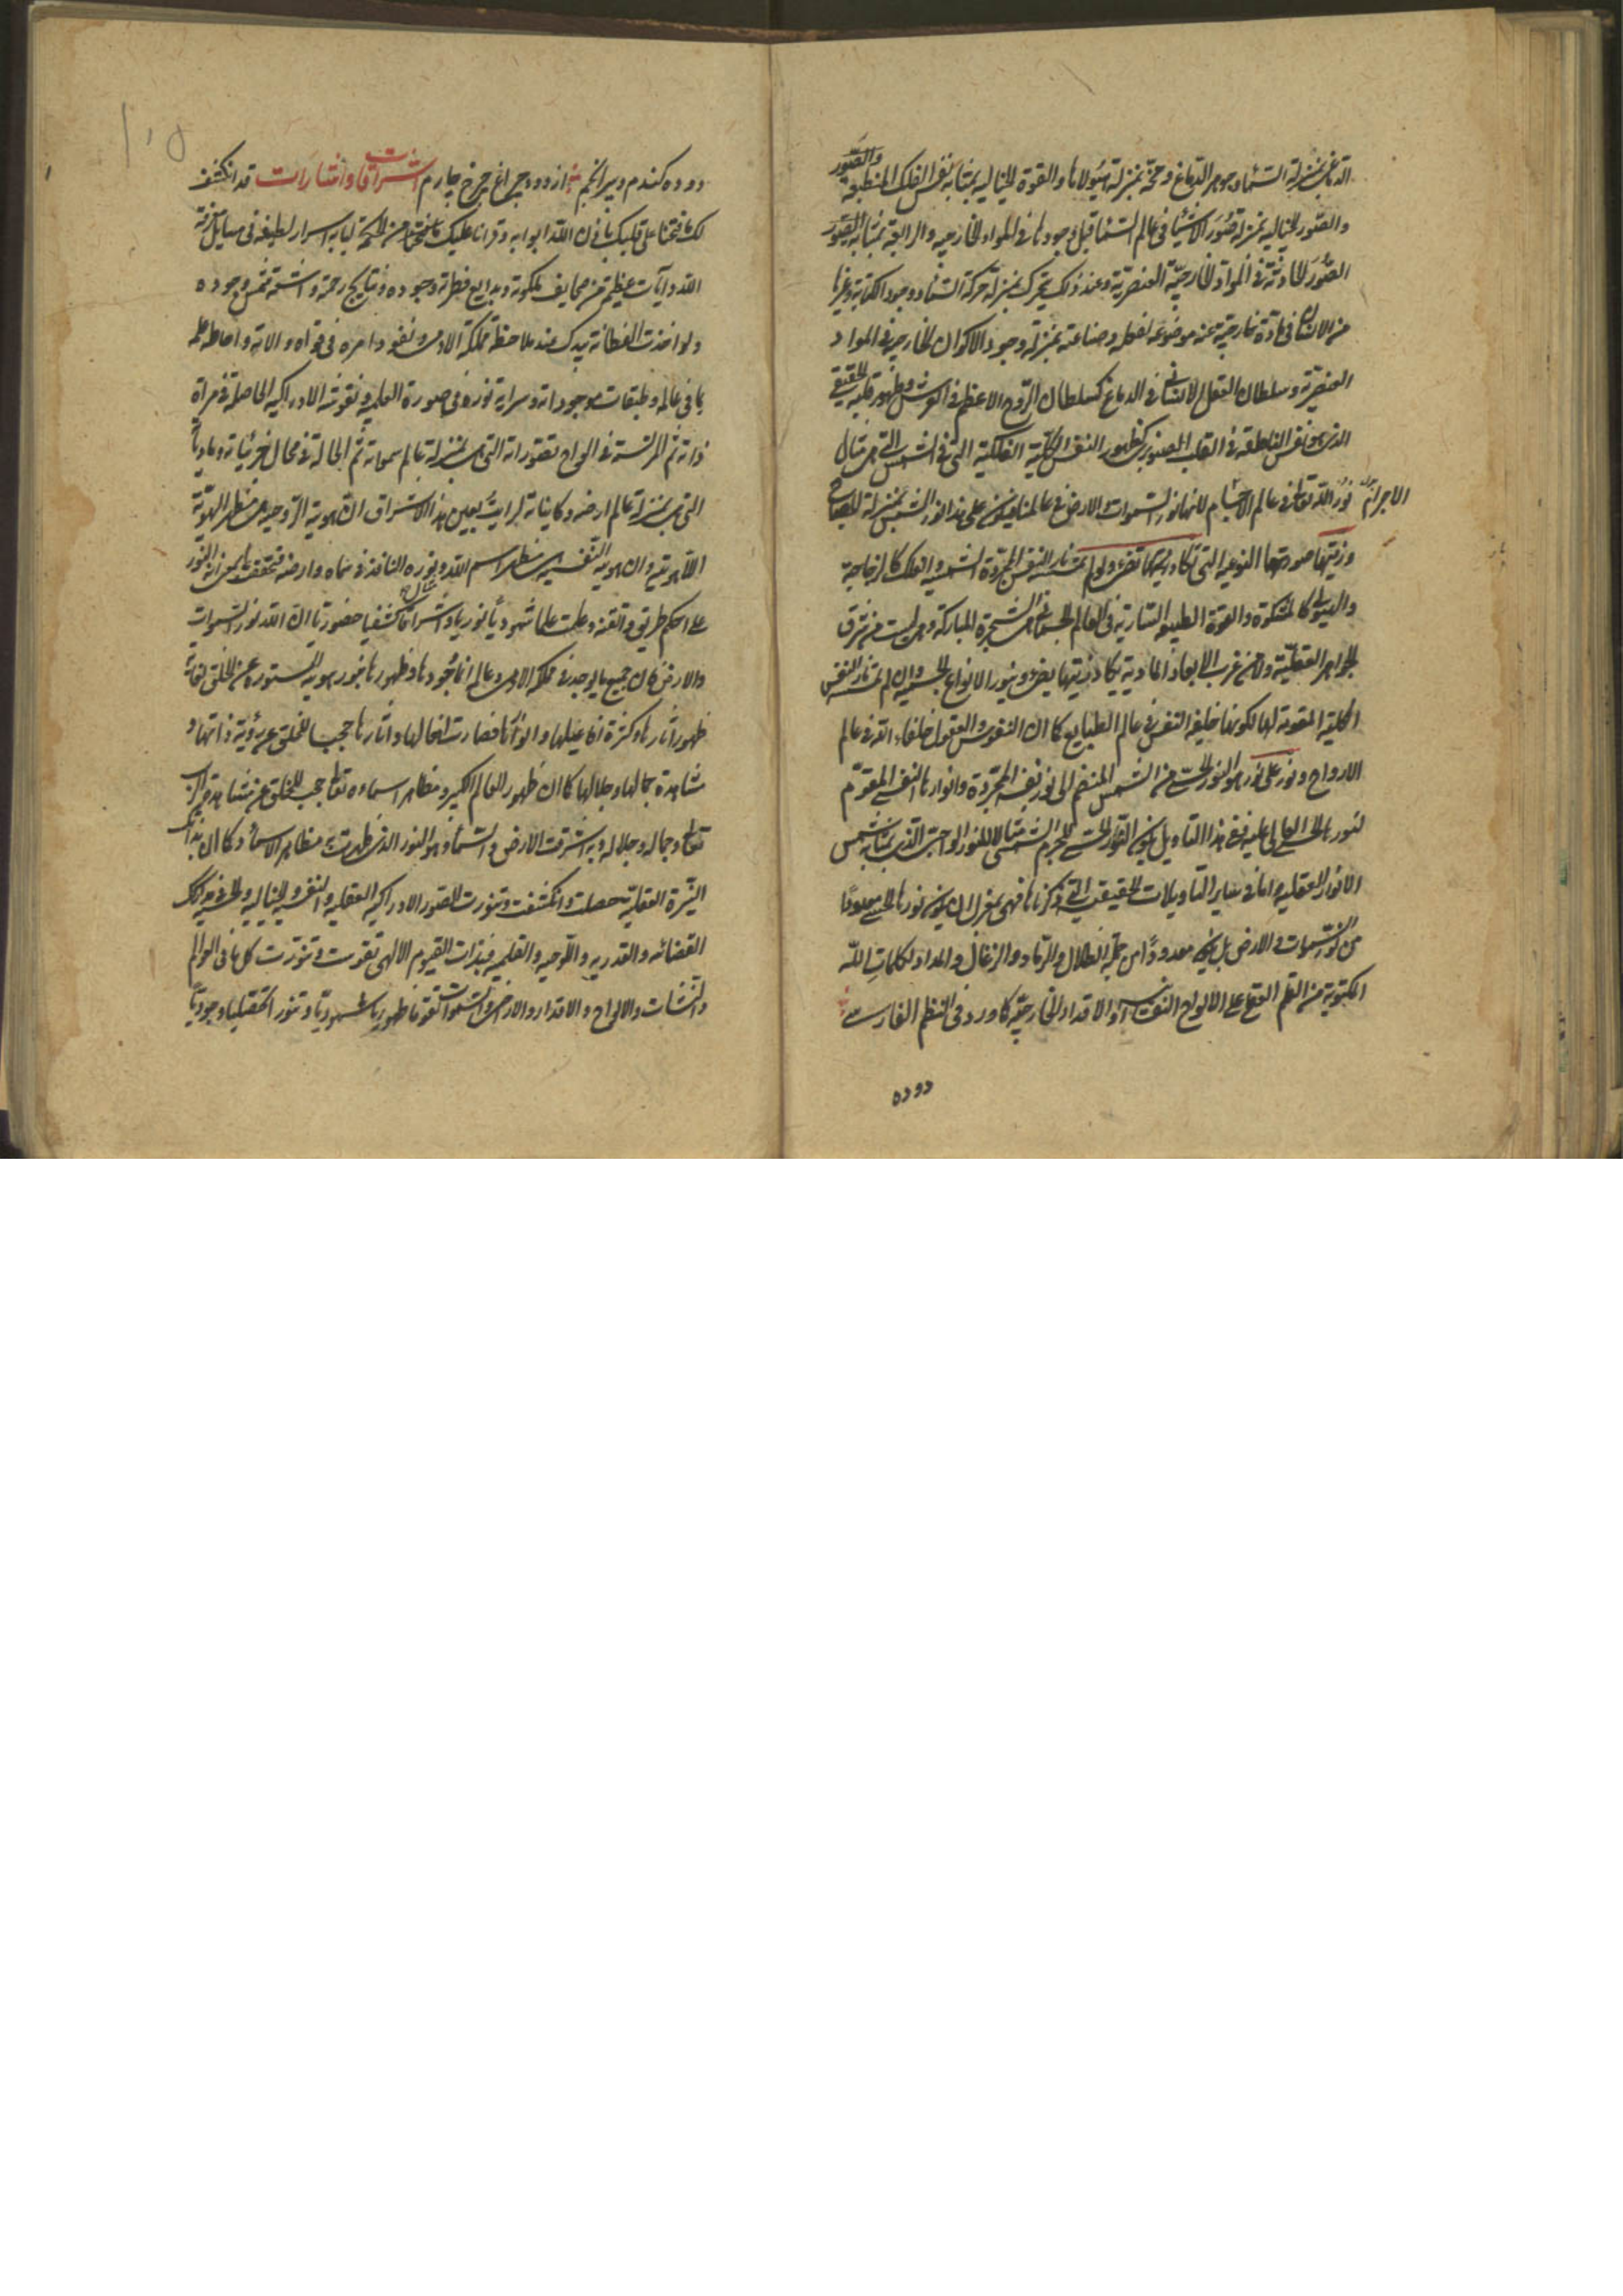 الدماغ بمنزلة السماء وجوهر الدماغ ومخه بمنزلة هيولاها والقوة الخيالية بمثابة نفس الفلك المنطبعة والصور
والصور الخيالية بمنزلة صور الأشياء في عالم السماء قبل وجودها في المواد الخارجية والرابعة بمثابة الصور
الصور الحادثة في المواد الخارجية العنصرية وعند ذلك يتحرك بمنزلة حركة السماء ووجود الكتابة وغيرها
من الانسان في مادة خارجية عند موضوعه لفعله وصناعته بمنزلة وجود الاكوان الخارجية في المواد
العنصرية وسلطان العقل الانساني في الدماغ كسلطان الروح الاعظم في العرش وظهور قلبه الحقيقي
الذي هو نفس الناطقة في القلب الصنوبري كظهور النفس الكلية الفلكية التي في الشمس التي هي مثال
نور الله تعالى في عالم الاجسام لانها نور السموات والارض في عالمنا فيكون على هذا نور الشمس بمنزلة المصباح
الاجرام
وزيتها صورتها النوعية التي تكاد زيتها تضيء ولو لم تمسسه نار النفس المجردة الشمسية والفلك كالزجاجة
والهيولى كالمشكوة والقوة الطبيعة السارية في العالم الجسماني هي الشجرة المباركة وهي ليست من شرق
الجواهر العقلية ولا من غرب الابعاد المادية يكاد زيتها يضيء وينور الانواع الجسمية وان لم تمسسه نار النفس
الكلية المقومة لها لكونها خليفة النفس في عالم الطبايع كما ان النفوس والعقول خلفاء الله في عالم
الارواح ونور على نور هو النور الحسي من الشمس المنضم الى نور نفسه المجردة وانوارها النفسي المقوم
لنورها الحسي العالي عليه فعلى هذا التأويل يكون النور الحسي للجرم الشمسي مثالا للنور الواجبي الذي بمثابة شمس
الانوار العقلية واما في ساير التأويلات الحقيقية التي ذكرناها فهي بمعزل ان يكون نورها الحسي معدودا
من نور السموات والارض بل يكون معدودا من جملة الظلال والرماد والزغال والمداد لكلمات الله
المكتوبة من القلم العقلي على الالواح النفسية او الاقدار الخارجية كما ورد في النظم الفارسي
دوده
دوده كندم دبير انجم را از دود چراغ چرخ چارم اشراقات وانتشارات قد انكشف
لك ما فتحنا على قلبك باذن الله ابوابه وقرأنا عليك ما نتحققه من الحكمة لبابه اسرار لطيفة في مسايل معرفة
الله وآيات عظيمة من صحايف ملكوته وبدايع فطرته وجوده ونتايج رحمته واشعة شمس وجوده
ولو اخذت الفطانة بيدك عند ملاحظة مملكة الآدمي ونفوذ امره في قواه والاته واحاطة علمه
بما في عالمه وطبقات موجوداته وسراية نوره في صورة العلمية ونقوشه الادراكية الحاصلة في مرآة
ذاته ثم المرتسمة في الواح تصوراته التي هي بمنزلة عالم سمواته ثم الحالة في محال جزئياته ومادياته
التي هي بمنزلة عالم ارضه وكايناته لرأيت بعين هذا الاشراق ان الهوية الروحية هي مظهر الهوية
اللاهوتية وان الهوية النفسية هي مظاهر اسم الله ونوره النافذ في سمائه وارضه فتحققت بما هو مثال النور
على احكم طريق واتقنه وعلمت علما شهوديا نوريا واشراقا كشفيا حضوريا ان الله نور السموات
والارض فان جميع ما يوجد في مملكة الآدمي وعالمه انما وجودها وظهورها بنور هويته المستورة عن الخلق لغاية
ظهور آثارها وكثرة افاعيلها وانوارها فصارت افعالها وآثارها حجب للخلق عن رؤية ذاتها و
مشاهدة جمالها وجلالها كما ان ظهور العالم الكبير ومظاهر اسمائه تعالى حجب للخلق عن مشاهدة ذات
تعالى وجماله وجلاله وبه اشرقت الارض والسماء وهو النور الذي ظهرت به مظاهر الاسماء وكما ان بذاتك
النيرة العقلية حصلت وانكشفت وتنورت الصور الادراكية العقلية والنفسية والخيالية والحسية كذلك
القضائية والقدرية واللوحية والقلمية فبذات القيوم الالهي تقومت وتنورت كل ما في العوالم
والنشآت والالواح والاقدار والارض والسموات تقوما ظهوريا شهوديا وتنورا تحصيليا وجوديا